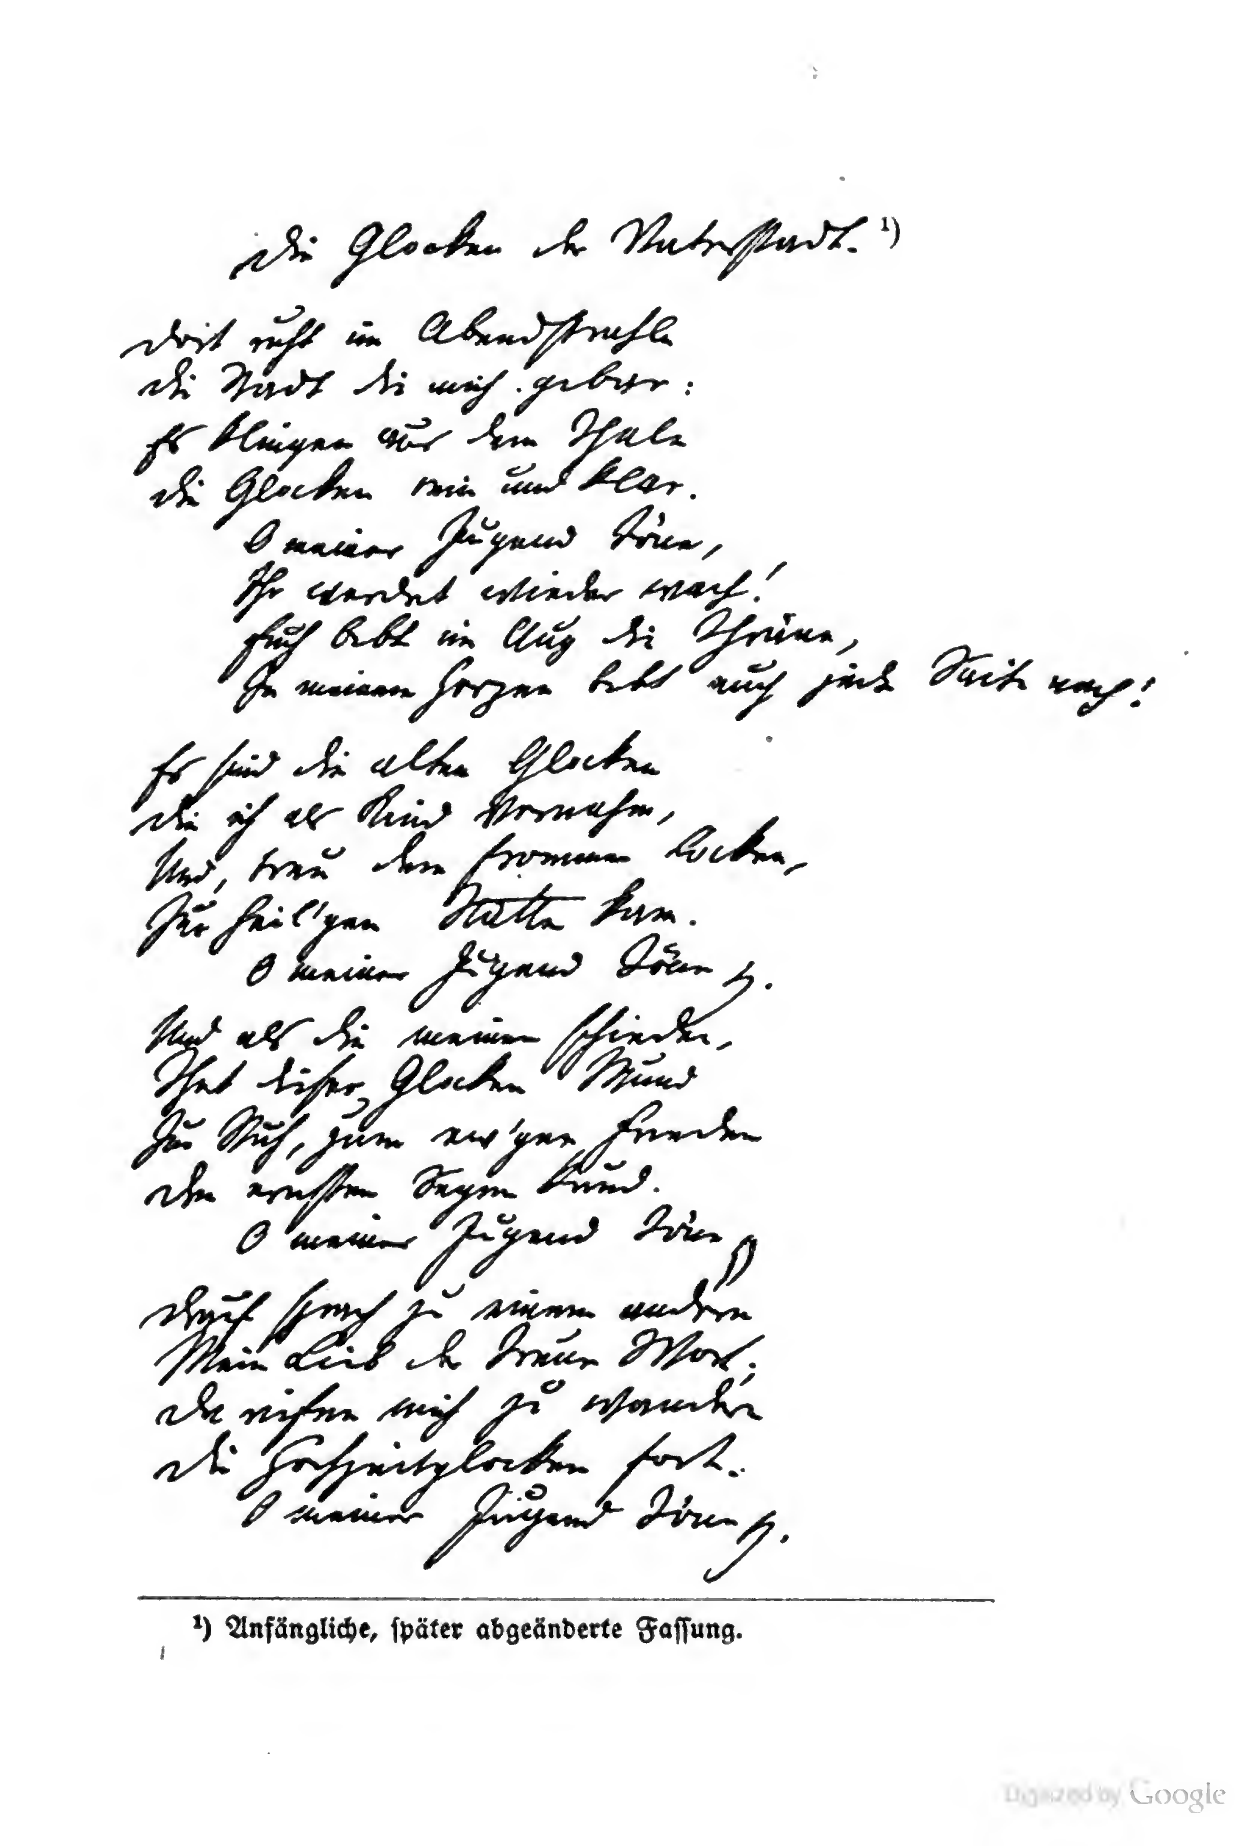 Die Glocken der Vaterstadt. ¹)
Dort ruht im Abendstrahle
die Stadt die mich gebar:
Es klingen aus dem Thale
die Glocken rein und klar.
O meiner Jugend Töne,
Ihr werdet wieder wach!
Euch bebt im Aug die Thräne,
In meinem Herzen bebt auch jede Saite nach!
Es sind die alten Glocken
die ich als Kind vernahm,
Und, treu dem frommen Locken,
Zur heil'gen Stätte kam.
O meiner Jugend Töne
Und als die meinen schieden,
That dieser Glocken Mund
Zur Ruh, zum ew'gen Frieden
den ernsten Segen kund.
O meiner Jugend Töne
Drauf sprach zu einem andern
Mein Lieb der Treue Wort;
Da riefen mich zu wandern
die Hochzeitglocken fort.
O meiner Jugend Töne
¹) Anfängliche, später abgeänderte Fassung.
Digitized by Google